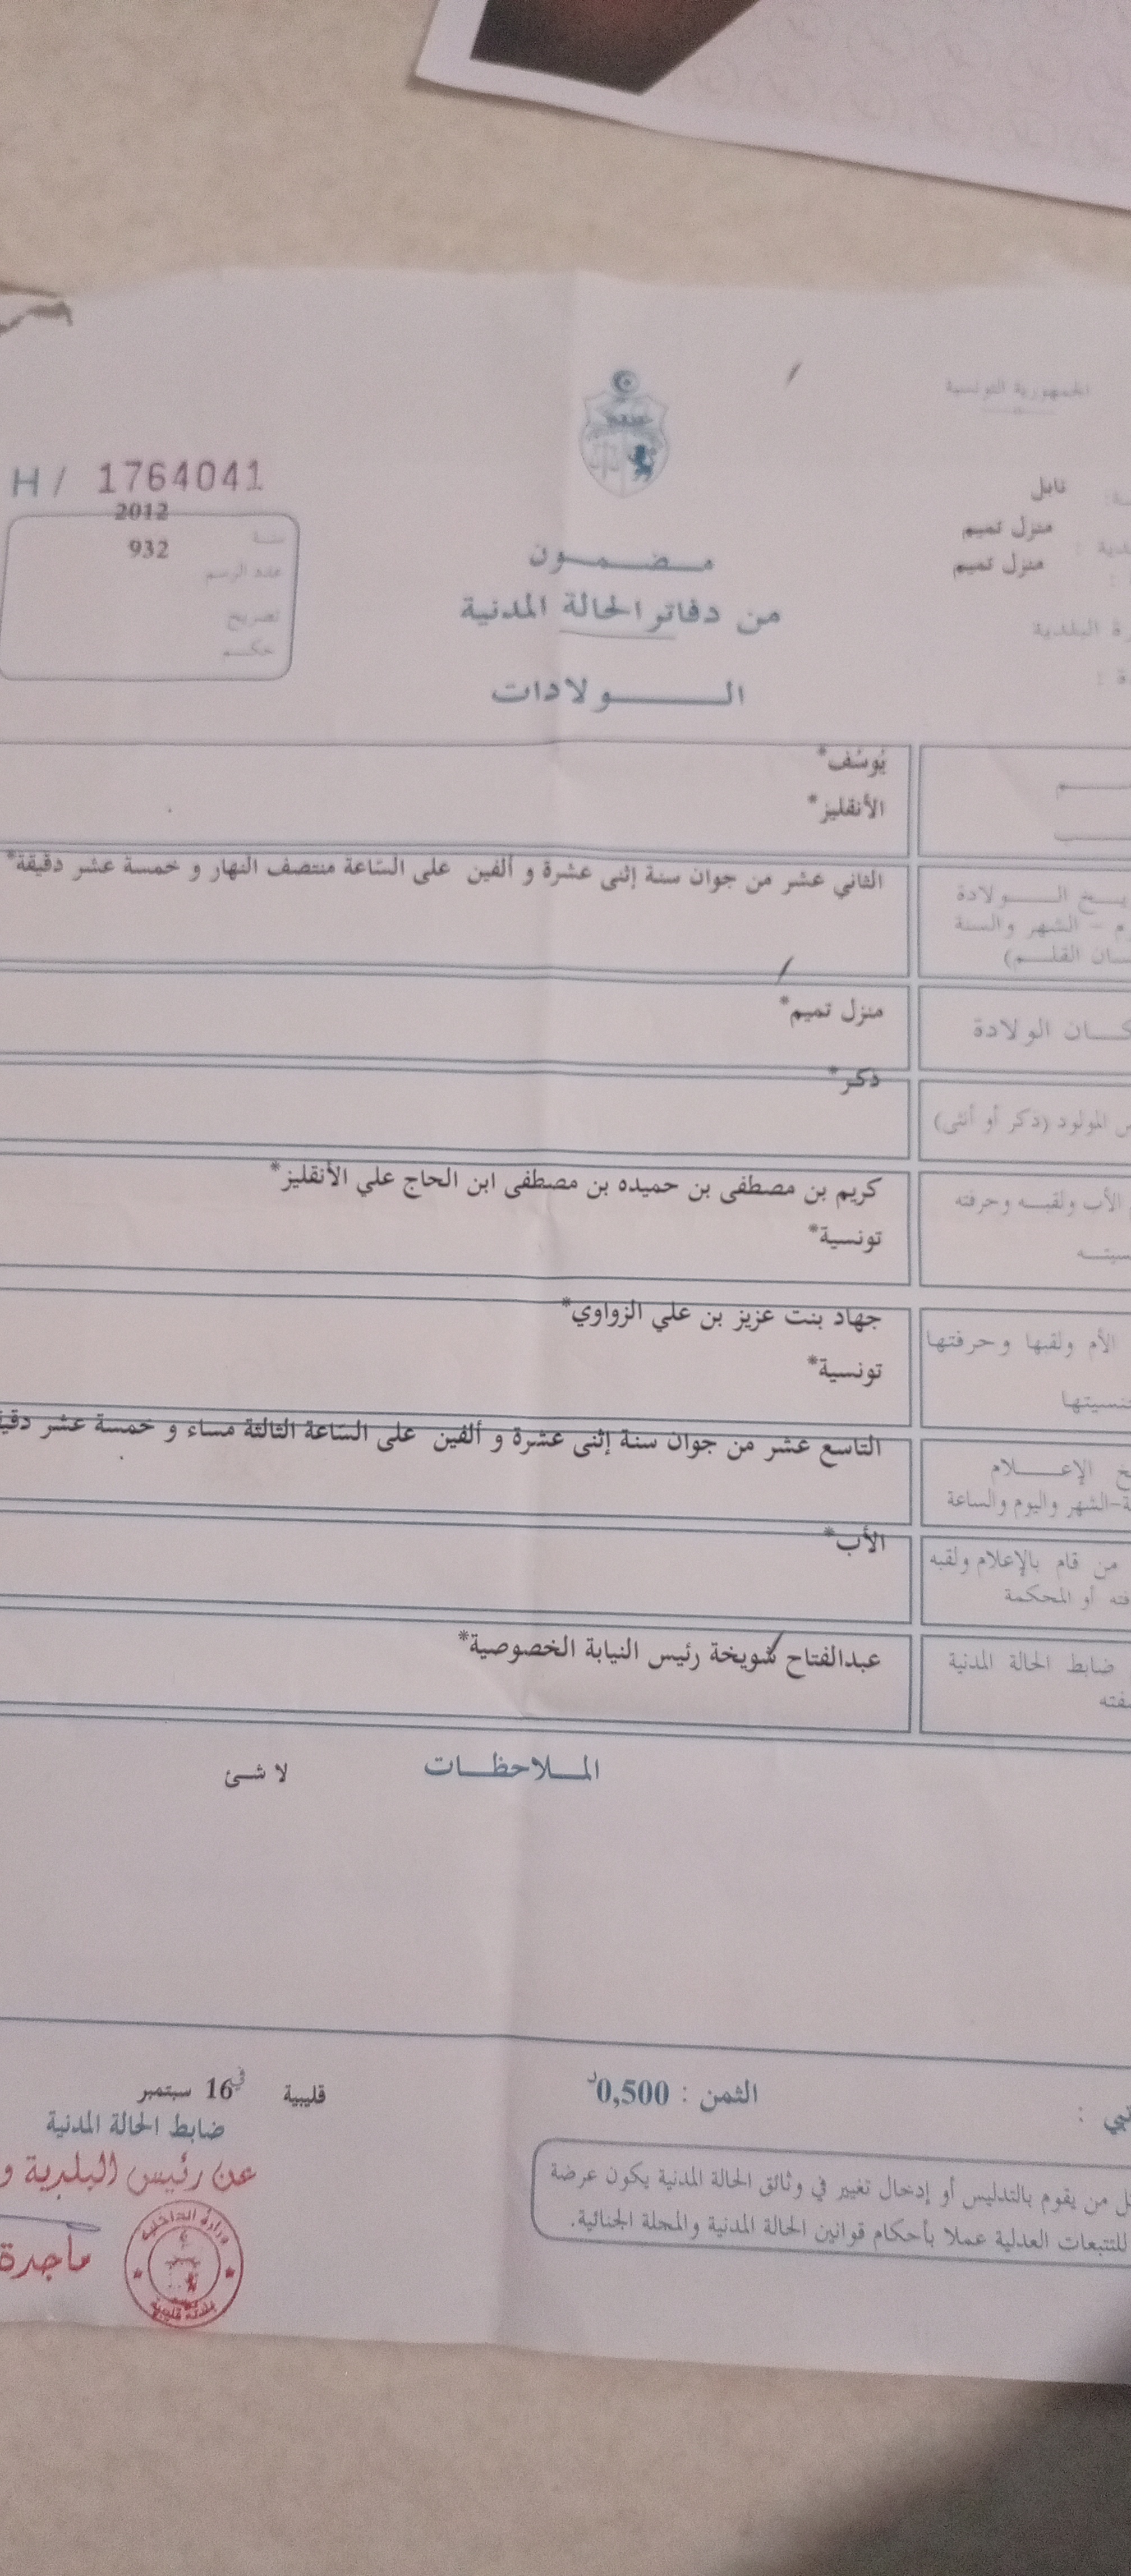 الجمهورية التونسية
H / 1764041
نابل
2012
منزل تميم
سنة
932
عدد الرسم
منزل تميم
مضمون
من دفاتر الحالة المدنية
تصريح
حكم
البلدية
الولادات
يُوسُف*
الأنقليز*
الثاني عشر من جوان سنة إثنى عشرة و ألفين على السّاعة منتصف النهار و خمسة عشر دقيقة*
الولادة
الشهر والسنة
القلم)
منزل تميم*
الولادة
ذكر*
المولود (ذكر أو أنثى)
كريم بن مصطفى بن حميده بن مصطفى ابن الحاج علي الأنقليز*
الأب ولقبه وحرفته
تونسية*
جهاد بنت عزيز بن علي الزواوي*
الأم ولقبها وحرفتها
تونسية*
التاسع عشر من جوان سنة إثنى عشرة و ألفين على السّاعة الثالثة مساء و خمسة عشر
الإعلام
-الشهر واليوم والساعة
الأب*
من قام بالإعلام ولقبه
أو المحكمة
عبدالفتاح شويخة رئيس النيابة الخصوصية*
ضابط الحالة المدنية
الملاحظات
لا شئ
الثمن : 0,500د
قليبية في 16 سبتمبر
ضابط الحالة المدنية
عن رئيس البلدية و
من يقوم بالتدليس أو إدخال تغيير في وثائق الحالة المدنية يكون عرضة
للتتبعات العدلية عملا بأحكام قوانين الحالة المدنية والمجلة الجنائية.
وزارة الداخلية
بلدية قليبية
ماجدة